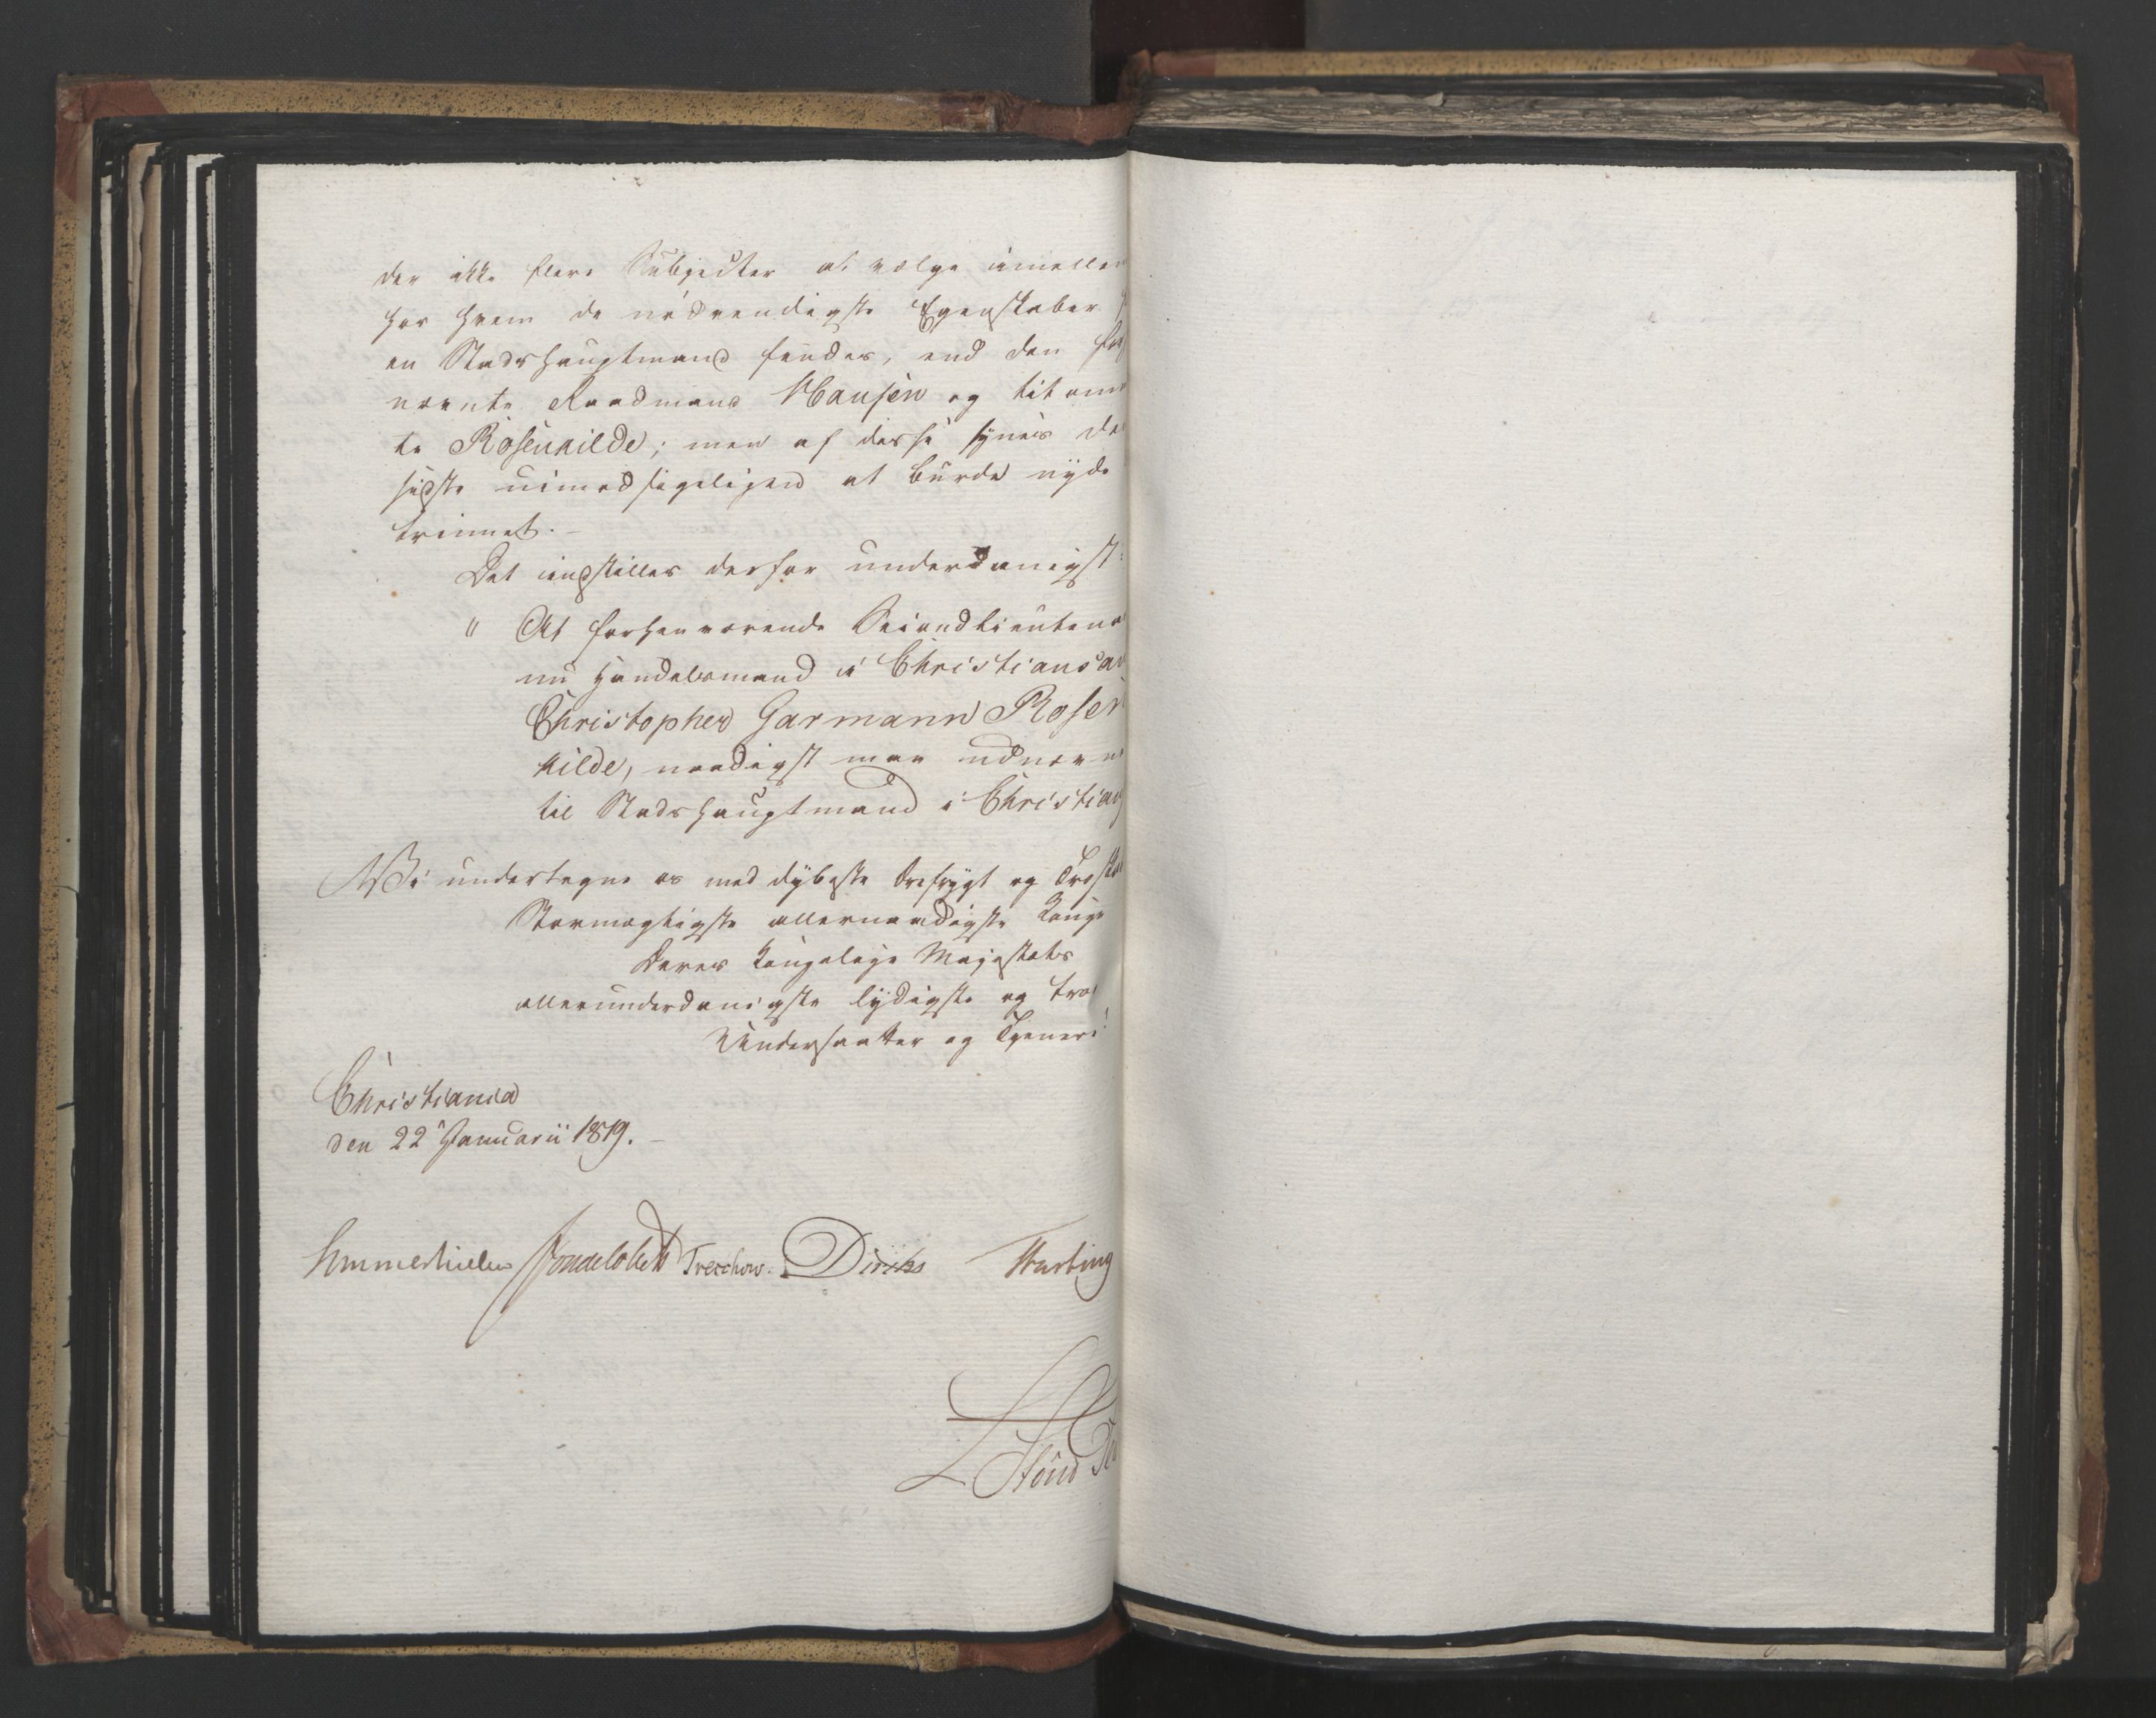 der ikke flere Subjecter at vælge imellem
hos hvem de nødvendigste Egenskaber
en Stadshauptmand findes, end den
nævnte Raadmand Hansen og
te Rosenkilde; men af disse synes
sidste uimodsigeligen at burde nyde
trinnet. -
Det indstilles derfor underdanigst:
" At forhenværende Secondlieutena
nu Handelsmand i Christiansan
Christopher Garmann Rosen
kilde, naadigst maa udnævn
til Stadshauptmand i Christian
Vi undertegne os med dybeste Ærefrygt og Troskab
Stormægtigste allernaadigste Konge
Deres Kongelige Majestæts
allerunderdanigste lydigste og tro
Undersaatter og Tjenere
Christiania
den 22 Januarii 1819. -
Sommerhielm Treschow. Diriks